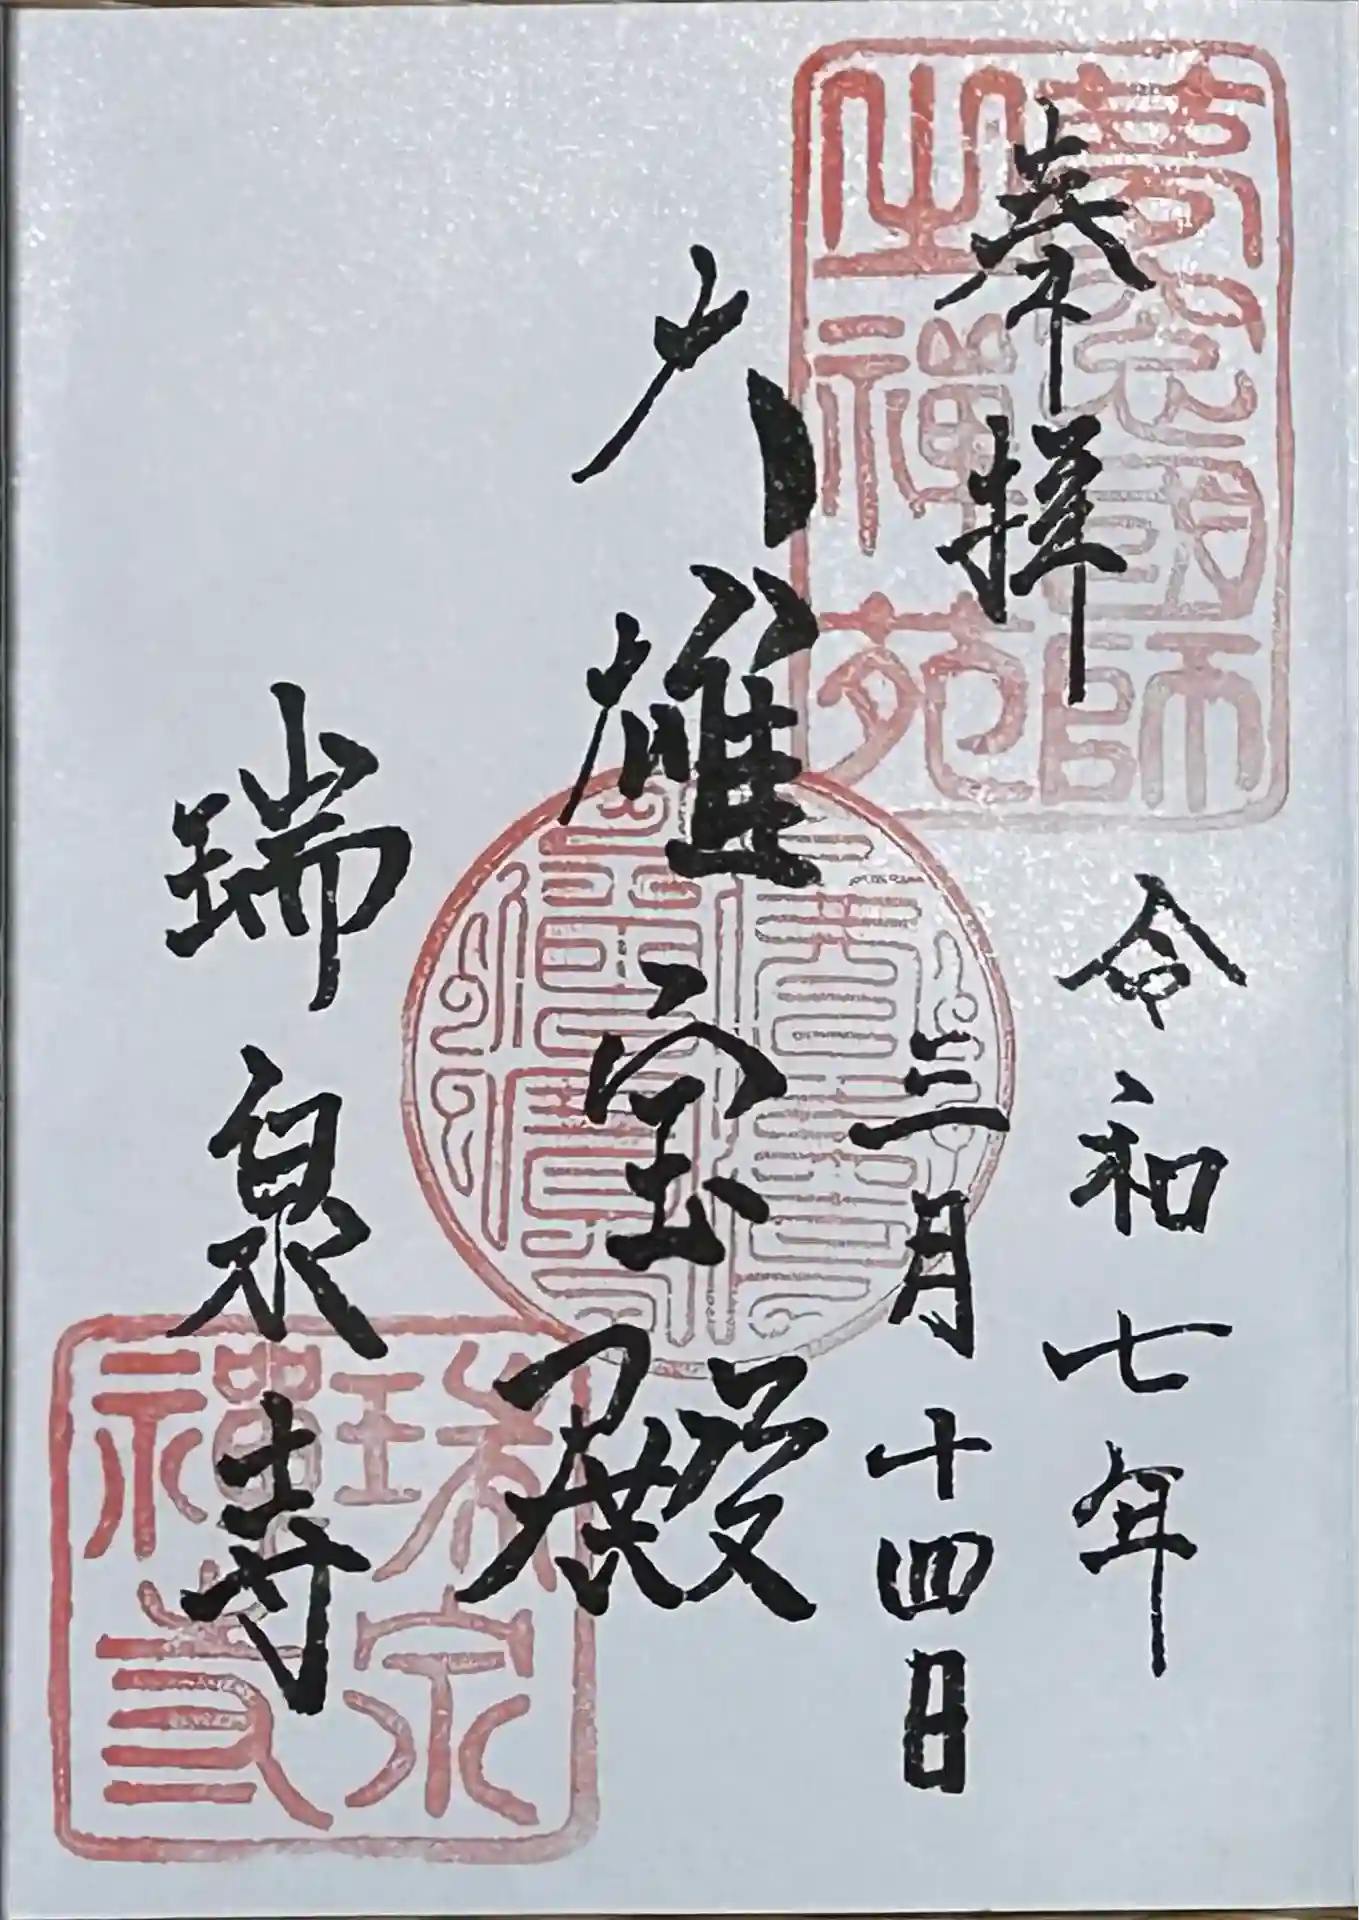 奉拝
令和七年
三月十四日
大雄宝殿
瑞泉寺
夢窓國師
之禅苑